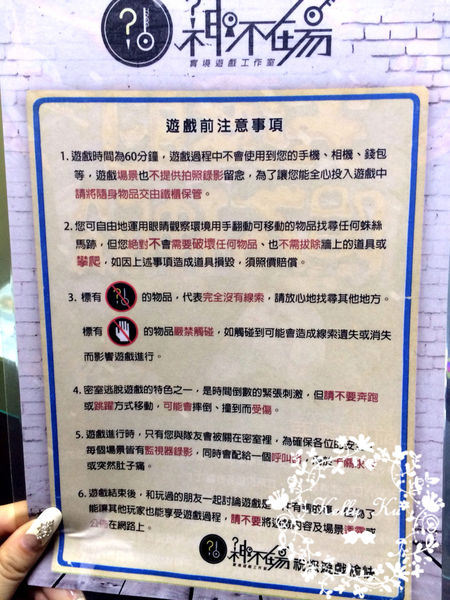 神不在場
實境遊戲工作室
遊戲前注意事項
1. 遊戲時間為60分鐘，遊戲過程中不會使用到您的手機、相機、錢包
等，遊戲場景也不提供拍照錄影留念，為了讓您能全心投入遊戲中
請將隨身物品交由鐵櫃保管。
2. 您可自由地運用眼睛觀察環境用手翻動可移動的物品找尋任何蛛絲
馬跡，但您絕對不會需要破壞任何物品、也不需拔除牆上的道具或
攀爬，如因上述事項造成道具損毀，須照價賠償。
3. 標有 的物品，代表完全沒有線索，請放心地找尋其他地方。
標有 的物品嚴禁觸碰，如觸碰到可能會造成線索遺失或消失
而影響遊戲進行。
4. 密室逃脫遊戲的特色之一，是時間倒數的緊張刺激，但請不要奔跑
或跳躍方式移動，可能會摔倒、撞到而受傷。
5. 遊戲進行時，只有您與隊友會被關在密室裡，為確保各位的安
每個場景皆有監視器錄影，同時會配給一個呼叫
或突然肚子痛。
6. 遊戲結束後，和玩過的朋友一起討論遊戲是 為了
能讓其他玩家也能享受遊戲過程，請不要將遊戲內容及場景 或
公 在網路上。
神不在場 祝您遊戲愉快